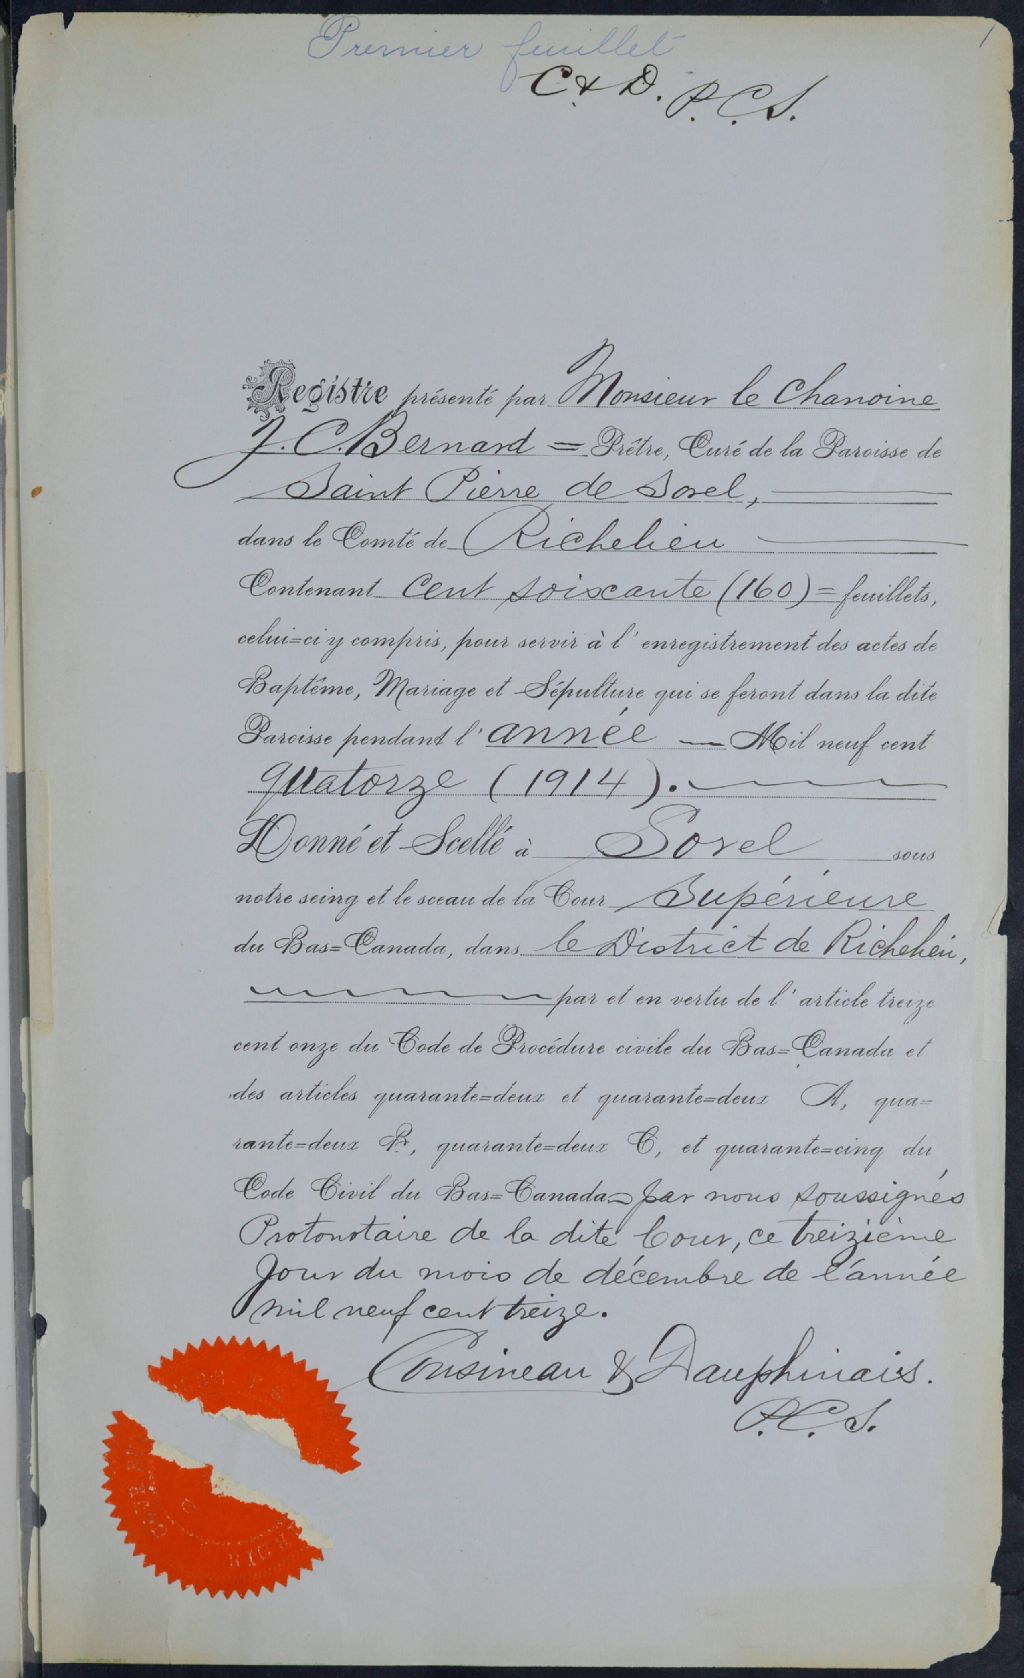 Premier feuillet
1
C & D. P.C.S.
Registre présenté par Monsieur le Chanoine
J. C. Bernard = Prêtre, Curé de la Paroisse de
Saint Pierre de Sorel,
dans le Comté de Richelieu
Contenant cent soixante (160) = feuillets,
celui=ci y compris, pour servir à l'enregistrement des actes de
Baptême, Mariage et Sépulture qui se feront dans la dite
Paroisse pendant l'année — Mil neuf cent
quatorze (1914).
Donné et Scellé à Sorel sous
notre seing et le sceau de la Cour Supérieure
du Bas=Canada, dans le District de Richelieu,
par et en vertu de l'article treize
cent onze du Code de Procédure civile du Bas=Canada et
des articles quarante=deux et quarante=deux A, qua=
rante=deux B, quarante=deux C, et quarante=cinq du
Code Civil du Bas=Canada= par nous soussignés
Protonotaire de la dite Cour, ce treizième
jour du mois de décembre de l'année
mil neuf cent treize.
Cousineau & Dauphinais.
P.C.S.